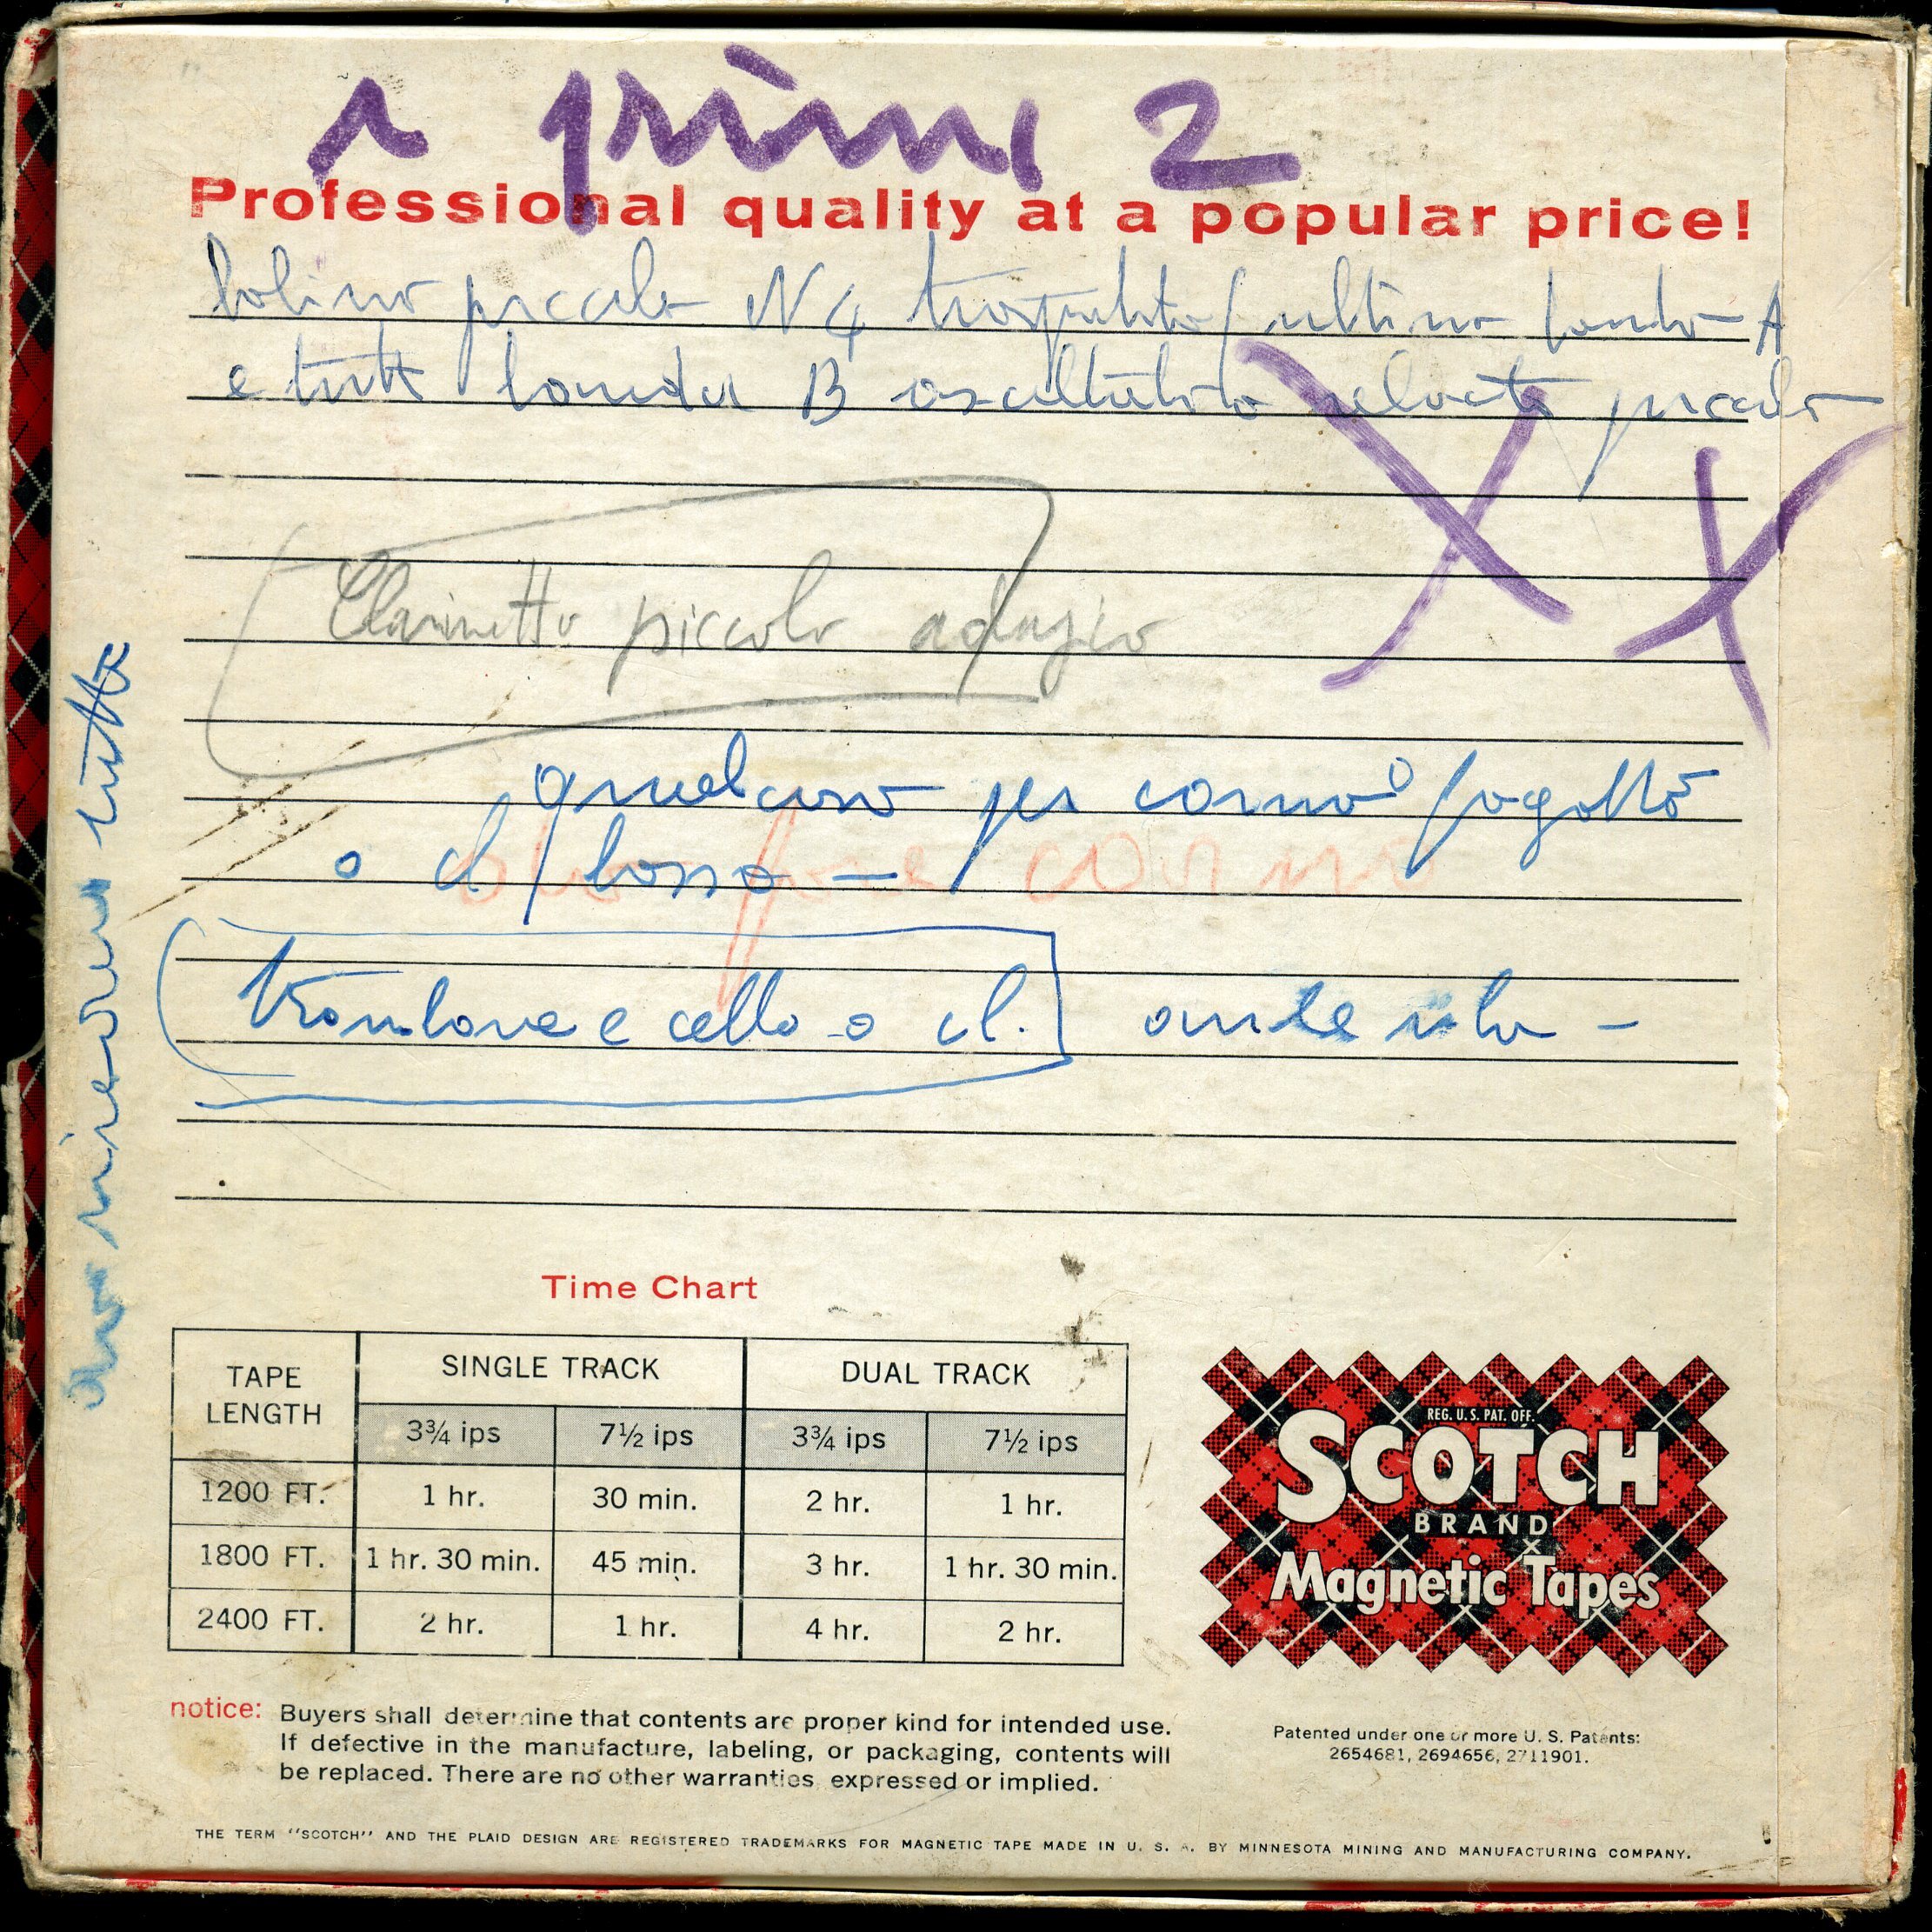 i primi 2
Professional quality at a popular price!
bobino piccolo N 4 ultimo banda A
e tutta banda B velocità piccola
Clarinetto piccolo adagio
qualcosa per corno o fagotto
o cl basso —
corno
Trombone e cello o cl.
tutta
Time Chart
TAPE LENGTH SINGLE TRACK DUAL TRACK
3¾ ips 7½ ips 3¾ ips 7½ ips
1200 FT. 1 hr. 30 min. 2 hr. 1 hr.
1800 FT. 1 hr. 30 min. 45 min. 3 hr. 1 hr. 30 min.
2400 FT. 2 hr. 1 hr. 4 hr. 2 hr.
REG. U.S. PAT. OFF.
SCOTCH
BRAND
Magnetic Tapes
notice: Buyers shall determine that contents are proper kind for intended use.
If defective in the manufacture, labeling, or packaging, contents will
be replaced. There are no other warranties expressed or implied.
Patented under one or more U. S. Patents:
2654681, 2694656, 2711901.
THE TERM "SCOTCH" AND THE PLAID DESIGN ARE REGISTERED TRADEMARKS FOR MAGNETIC TAPE MADE IN U. S. A. BY MINNESOTA MINING AND MANUFACTURING COMPANY.